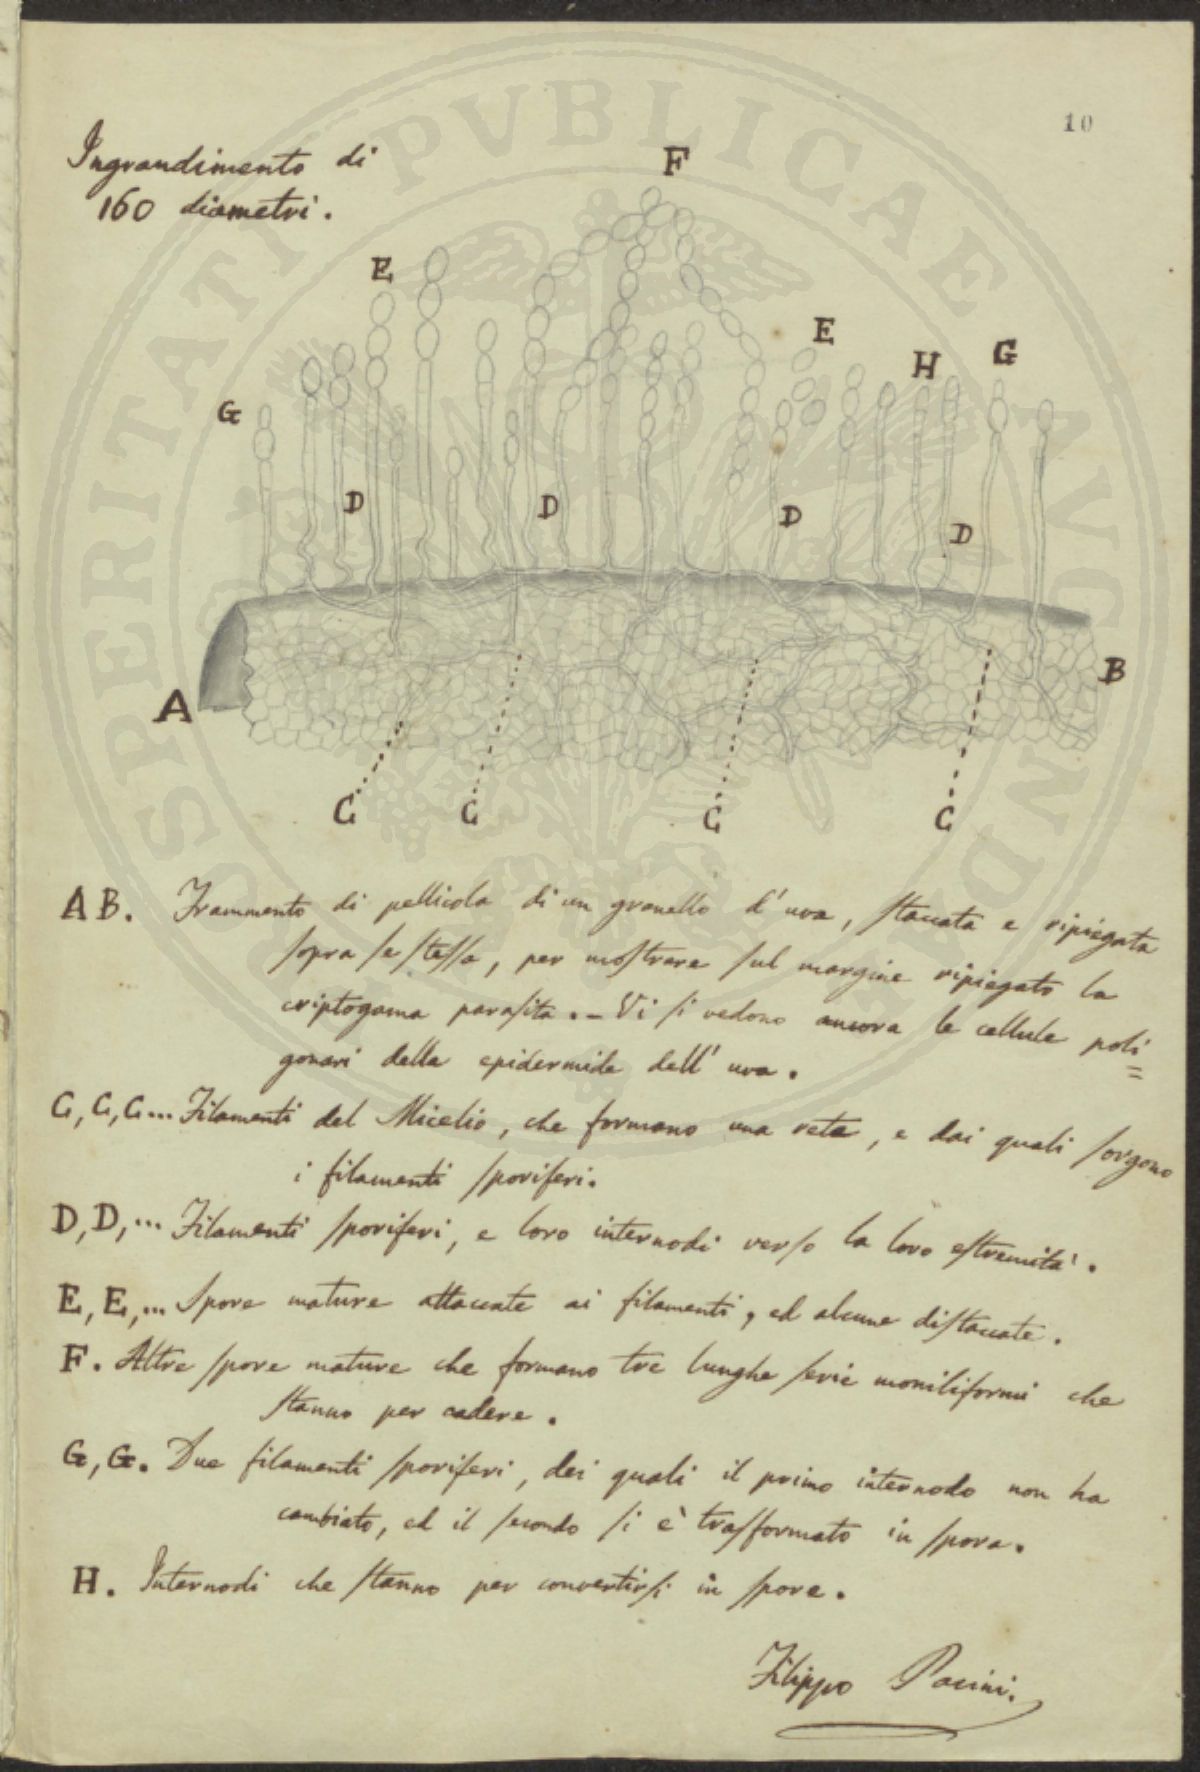 10
Ingrandimento di
160 diametri.
F
E
E
G
H
G
D
D
D
D
A
B
C
C
C
C
AB. Frammento di pellicola di un granello d'uva, staccata e ripiegata
sopra se stessa, per mostrare sul margine ripiegato la
criptogama parasita. – Vi si vedono ancora le cellule poli=
gonari della epidermide dell'uva.
C, C, C... Filamenti del Micelio, che formano una rete, e dai quali sorgono
i filamenti sporiferi.
D, D, ... Filamenti sporiferi, e loro internodi verso la loro estremità.
E, E, ... Spore mature attaccate ai filamenti, ed alcune distaccate.
F. Altre spore mature che formano tre lunghe serie moniliformi che
stanno per cadere.
G, G. Due filamenti sporiferi, dei quali il primo internodo non ha
cambiato, ed il secondo si è trasformato in spora.
H. Internodi che stanno per convertirsi in spore.
Filippo Pacini.
PROSPERITATI PVBLICAE AVGENDAE